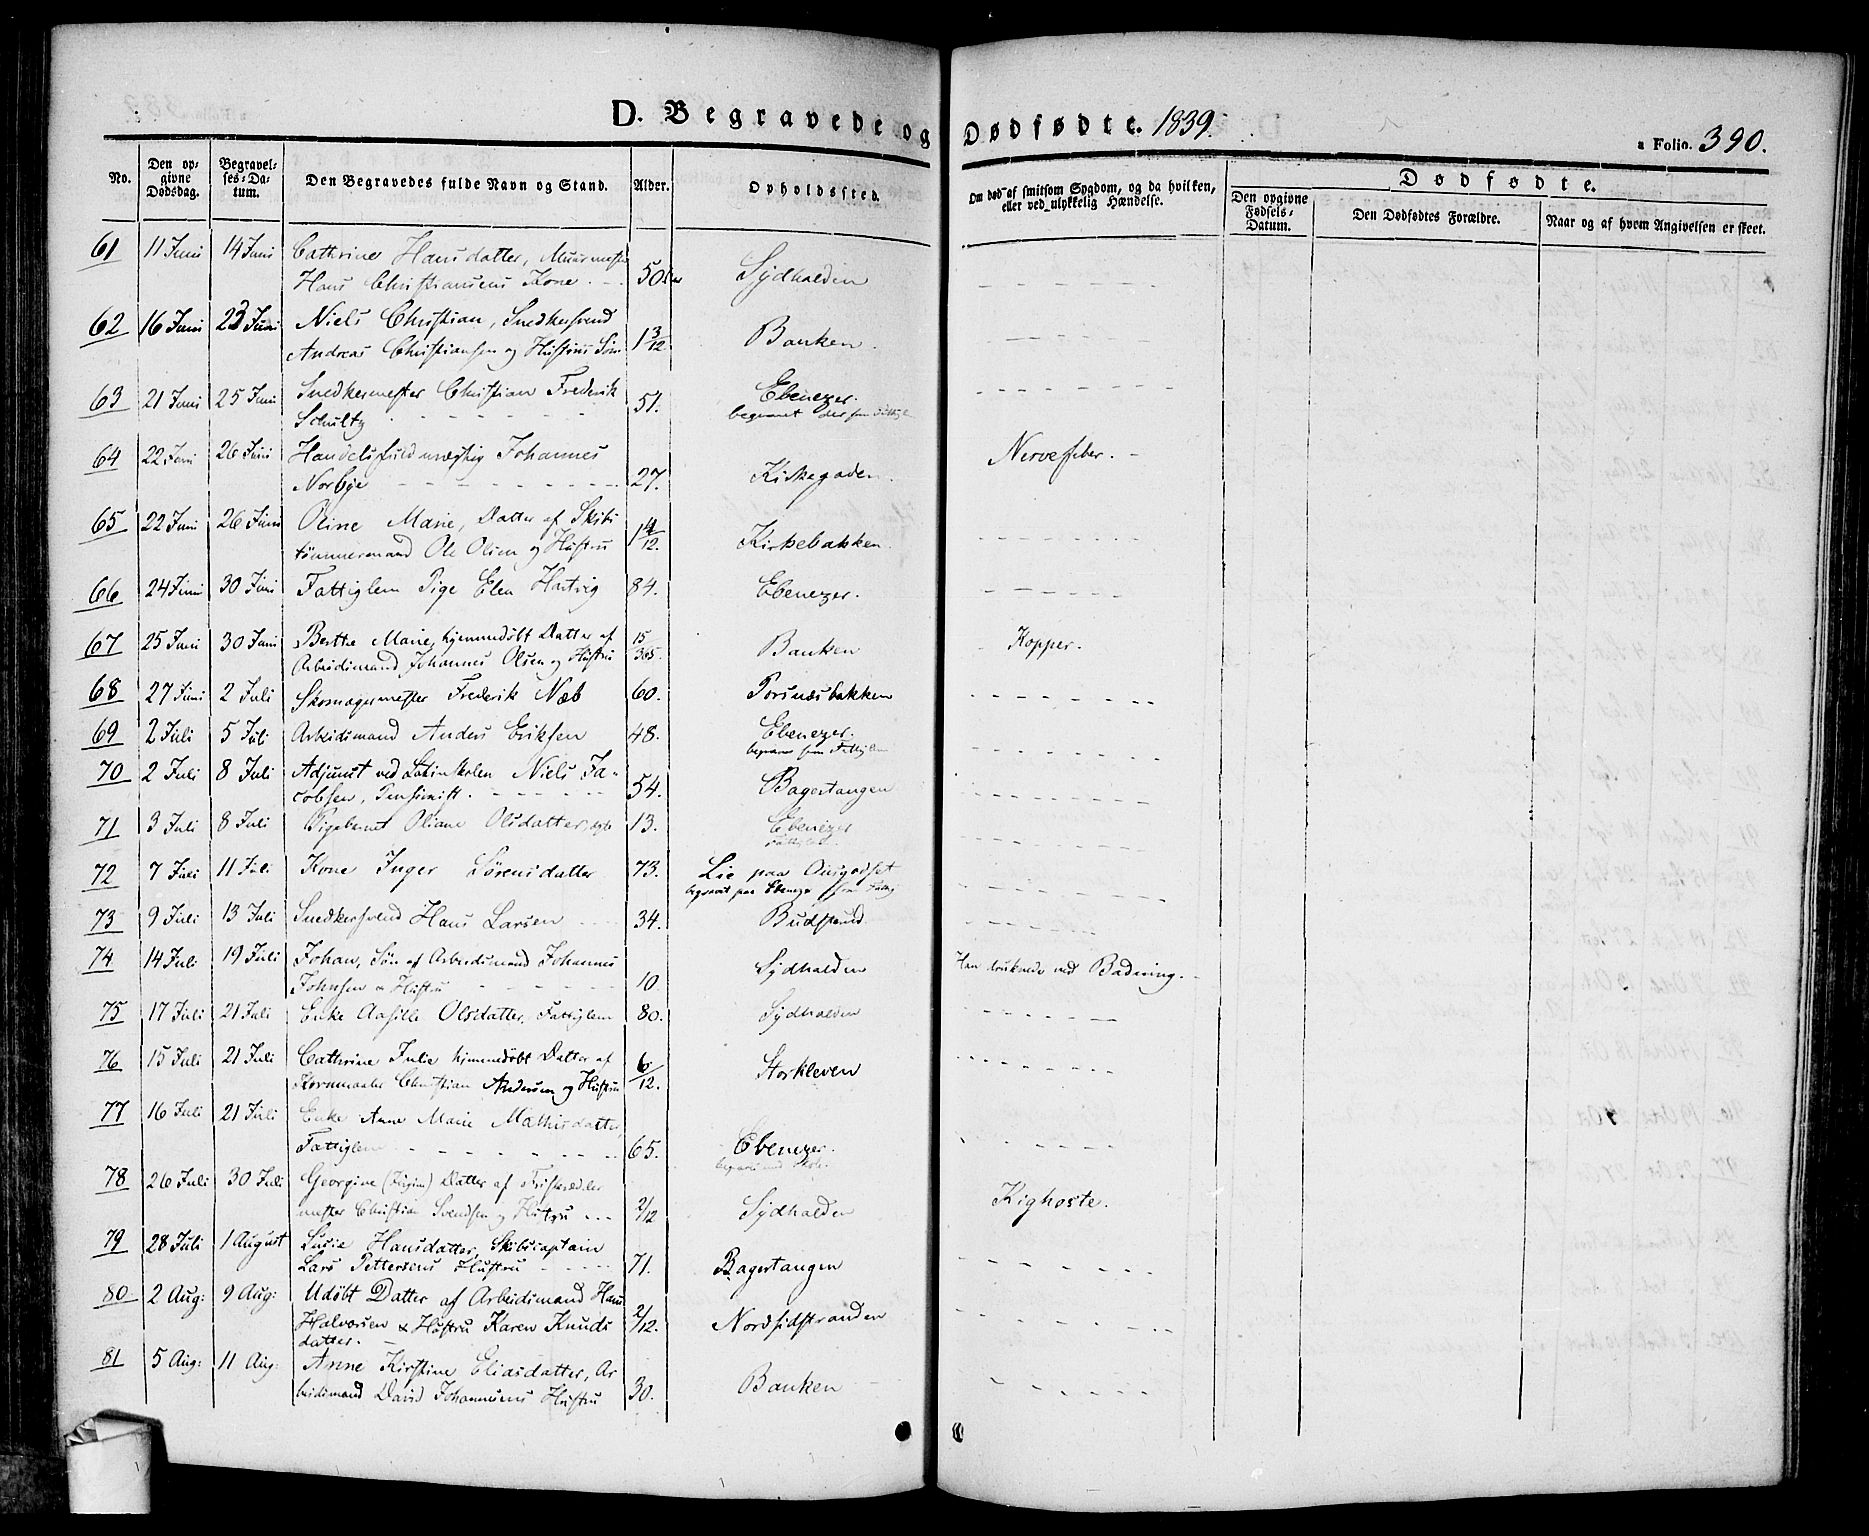 D. Begravede og Dødfødte. 1839.
a Folio. 390.
No. Den opgivne Dødsdag. Begravelses-Datum. Den Begravedes fulde Navn og Stand. Alder. Opholdssted. Om død af smitsom Sygdom, og da hvilken, eller ved ulykkelig Hændelse. Dødfødte.
Den opgivne Fødsels-Datum. Den Dødfødtes Forældre. Naar og af hvem Angivelsen er skeet.
61 11 Juni 14 Juni Cathrine Hansdatter, Muurmester
Hans Christiansens Kone 50 Sydhalden
62 16 Juni 23 Juni Niels Christian, Snedkersvend
Andreas Christiansen og Hustrus Søn 1 3/12 Banken.
63 21 Juni 25 Juni Snedkermester Christian Frederik
Schultz 51. Ebenezer.
begravet der fra
64 22 Juni 26 Juni Handelsfuldmægtig Johannes Nervefeber.
Norbye 27. Kirkegaden.
65 22 Juni 26 Juni Oline Marie, Datter af Skibs
tømmermand Ole Olsen og Hustru 1 4/12. Kirkebakken.
66 24 Juni 30 Juni Fattiglem Pige Elen Hartvig 84. Ebenezer.
67 25 Juni 30 Juni Berthe Marie, hjemmedøbt Datter af
Arbeidsmand Johannes Olsen og Hustru 15/365. Banken Kopper.
68 27 Juni 2 Juli Skomagermester Frederik Næb 60. Porsnæsbakken
69 2 Juli 5 Juli Arbeidsmand Anders Eriksen 48. Ebenezer.
70 2 Juli 8 Juli Adjunct ved Latinskolen Niels Ja-
cobsen, Pensionist. 54. Bagertangen
71 3 Juli 8 Juli Pigebarnet Oliane Olsdatter, 13. Ebenezer
72 7 Juli 11 Juli Kone Inger Sørensdatter 73. Lie paa
begravet paa Ebenezer
73 9 Juli 13 Juli Snedkersvend Hans Larsen 34. Budstrand
74 14 Juli 19 Juli Johan, Søn af Arbeidsmand Johannes
Johnsen & Hustru 10 Sydhalden Han druknede ved Badning.
75 17 Juli 21 Juli Enke Aasille Olsdatter, Fattiglem 80. Sydhalden
76 15 Juli 21 Juli Cathrine Julie hjemmedøbt Datter af
Kornmaaler Christian Andersen og Hustru 6/12. Storkleven
77 16 Juli 21 Juli Enke Anne Marie Mathisdatter,
Fattiglem 65. Ebenezer.
78 26 Juli 30 Juli Georgine Datter af
mester Christian Svendsen og Hustru 2/12 Sydhalden Kighoste.
79 28 Juli 1 August Susie Hansdatter, Skibscaptain
Lars Pettersens Hustru 71. Bagertangen
80 2 Aug: 9 Aug: Udøbt Datter af Arbeidsmand Hans
Halvorsen & Hustru Karen Knuds
datter. 2/12. Nordsidstranden
81 5 Aug: 11 Aug: Anne Kirstine Eliasdatter, Ar
beidsmand David Johannesens Hustru 30. Banken